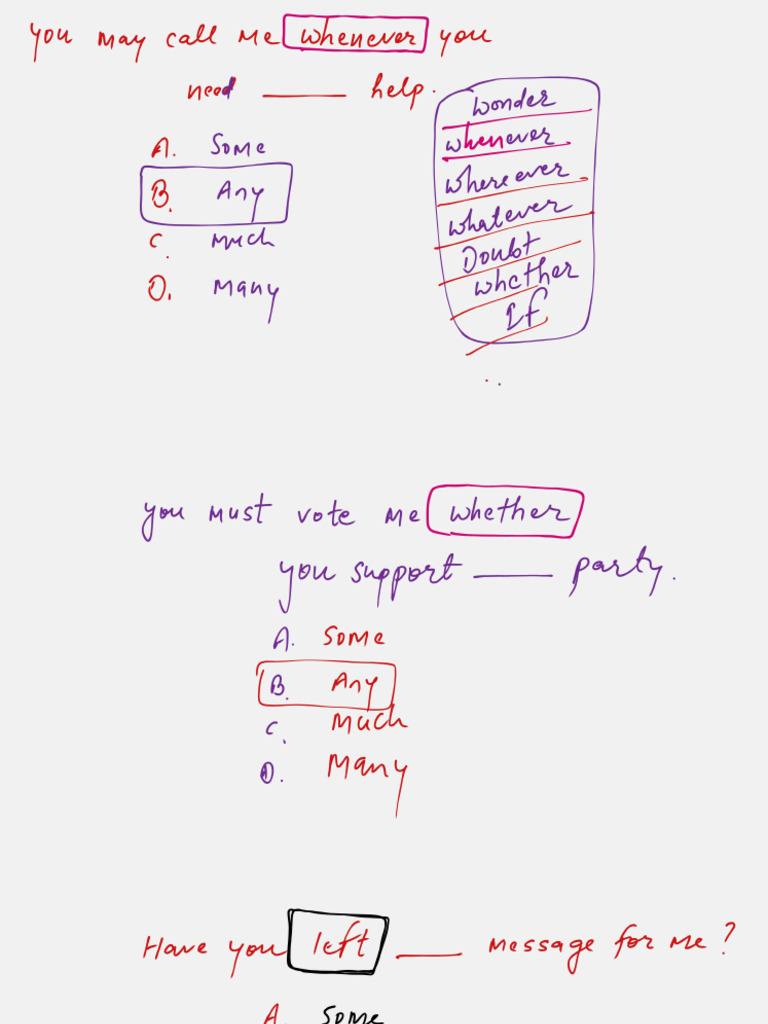 you may call me whenever you
need ____ help.
A. Some
B. Any
C. Much
D. Many
wonder
whenever
whereever
whatever
Doubt
whether
If
you must vote me whether
you support ____ party.
A. Some
B. Any
C. Much
D. Many
Have you left ____ message for me?
A. Some